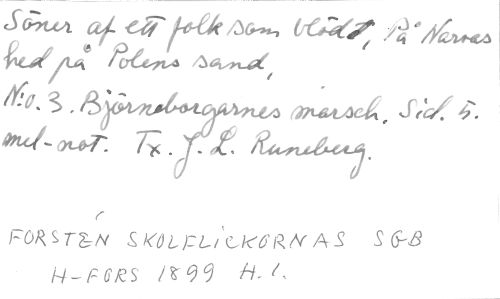 Söner af ett folk som blödt, På Narvas
hed på Polens sand,
N:o. 3. Björneborgarnes marsch. Sid. 5.
mel-not. Tx. J. L. Runeberg.
FORSTÉN SKOLFLICKORNAS SGB
H-FORS 1899 H.1.